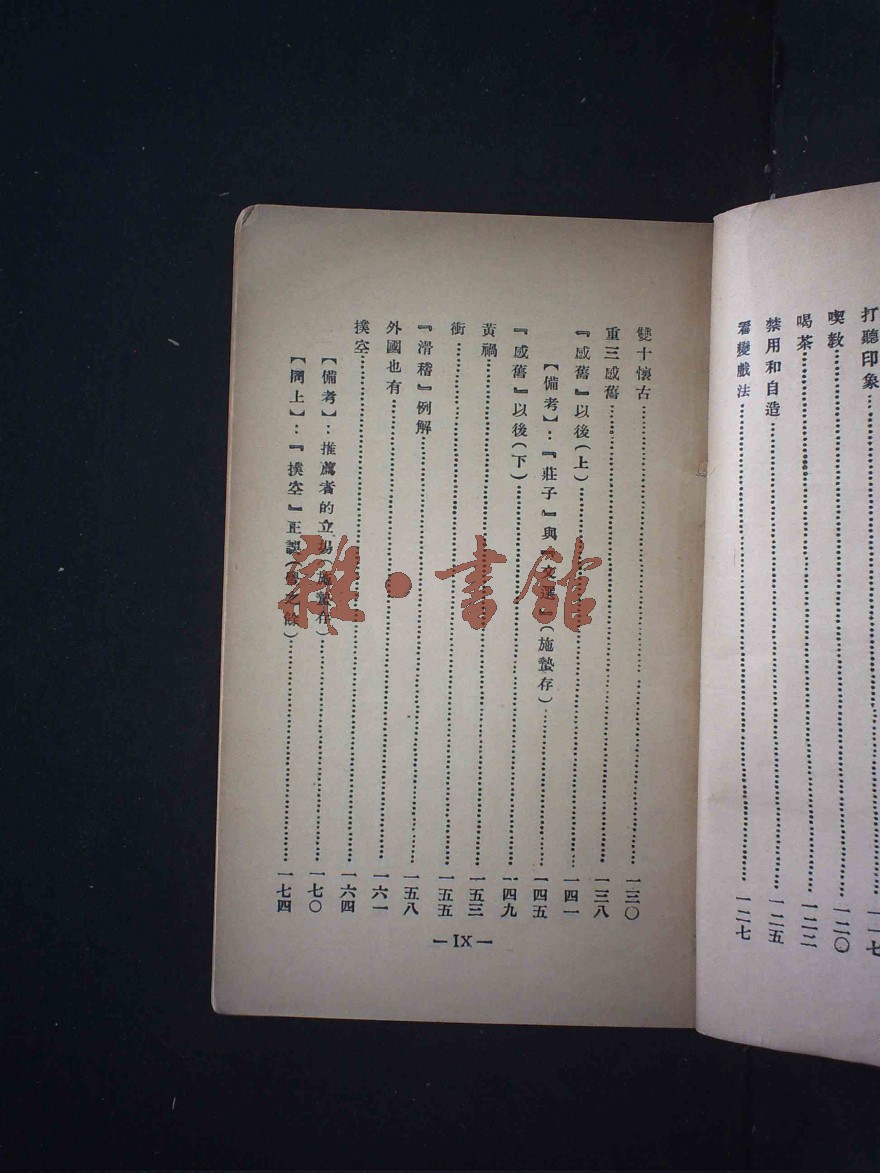 打聽印象……一一七
喫教……一二〇
喝茶……一二二
禁用和自造……一二五
看變戲法……一二七
雙十懷古……一三〇
重三感舊……一三八
『感舊』以後(上)……一四一
【備考】:『莊子』與『文選』(施蟄存)……一四五
『感舊』以後(下)……一四九
黃禍……一五三
衝……一五五
『滑稽』例解……一五八
外國也有……一六一
撲空……一六四
【備考】:推薦者的立場 施蟄存)……一七〇
【同上】:『撲空』正誤(豐之餘)……一七四
—IX—
雜·書館